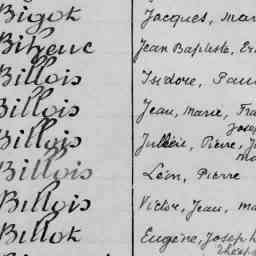 Bigot Jacques, Mar
Biheuc Jean Baptiste, Er
Billois Isidore, Paul
Billois Jean, Marie, Fra
Josep
Billois Pierre, J
Ma
Billois Léon, Pierre
Billois Victor, Jean, Ma
Billot Eugène, Joseph